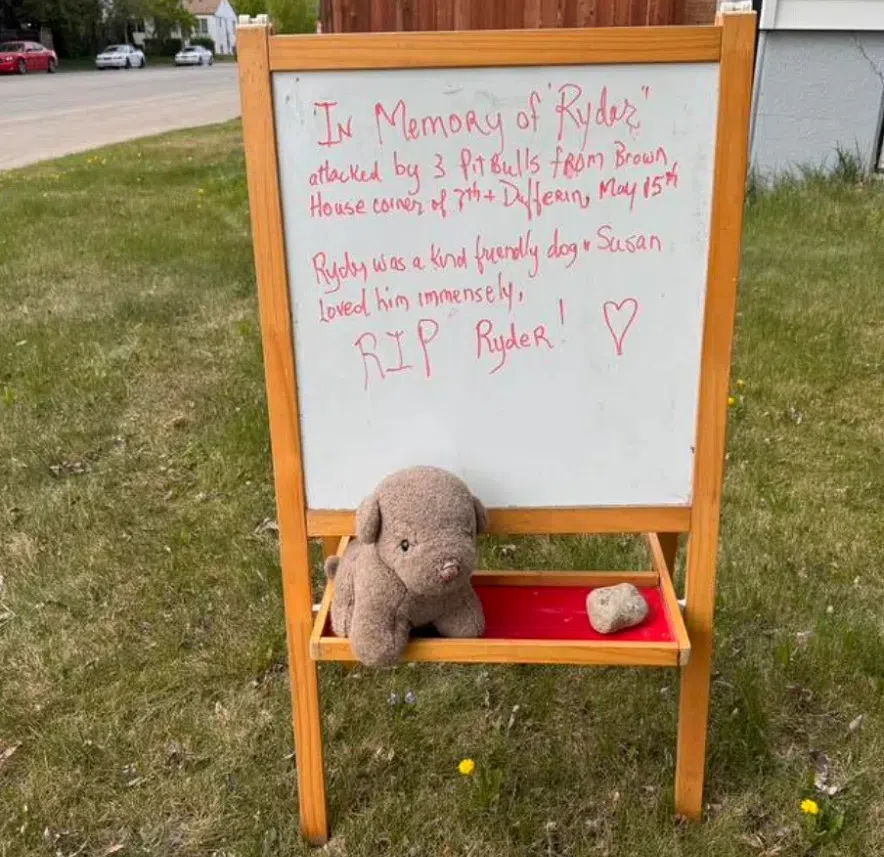 "In Memory of "Ryder"
attacked by 3 Pit Bulls from Brown
House corner of 7th + Dufferin, May 15th
Ryder was a kind friendly dog. Susan
loved him immensely.
RIP Ryder! ♡